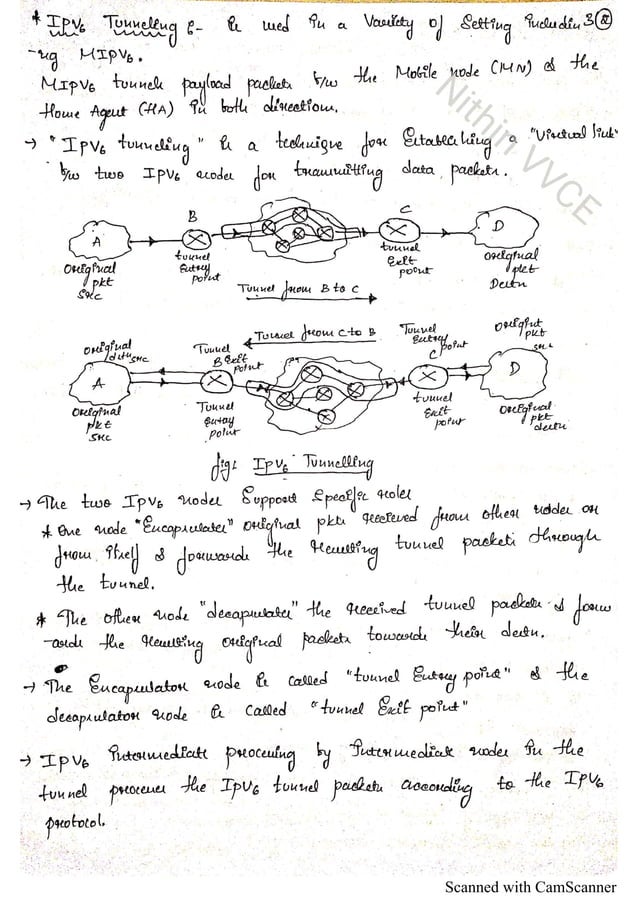 * IPV6 Tunneling :- is used in a Variety of Setting includin 3
-ng MIPV6.
MIPV6 tunnels payload packets b/w the Mobile node (MN) & the
Home Agent (HA) in both directions.
→ "IPV6 tunneling" is a technique for Establishing a "Virtual link"
b/w two IPV6 nodes for transmitting data packets.
Nithin VVCE
B
C
A
D
original
pkt
src
tunnel
Entry
point
tunnel
Exit
point
original
pkt
Destn
Tunnel from B to C
Tunnel from C to B
original
destn
src
Tunnel
B Exit
point
Tunnel
Entry
point
C
pkt
A
D
original
pkt
src
Tunnel
Entry
point
tunnel
Exit
point
original
pkt
destn
fig: IPV6 Tunnelling
→ The two IPV6 nodes Support Specific roles
* One node "Encapsulates" original pkts received from other nodes or
from itself & forwards the resulting tunnel packets through
the tunnel.
* The other node "decapsulates" the received tunnel packets & forw
-ards the resulting original packets towards their destn.
→ The Encapsulator node is called "tunnel Entry point" & the
decapsulator node is called "tunnel Exit point"
→ IPV6 Intermediate processing by Intermediate nodes in the
tunnel processes the IPV6 tunnel packets according to the IPV6
protocol.
Scanned with CamScanner